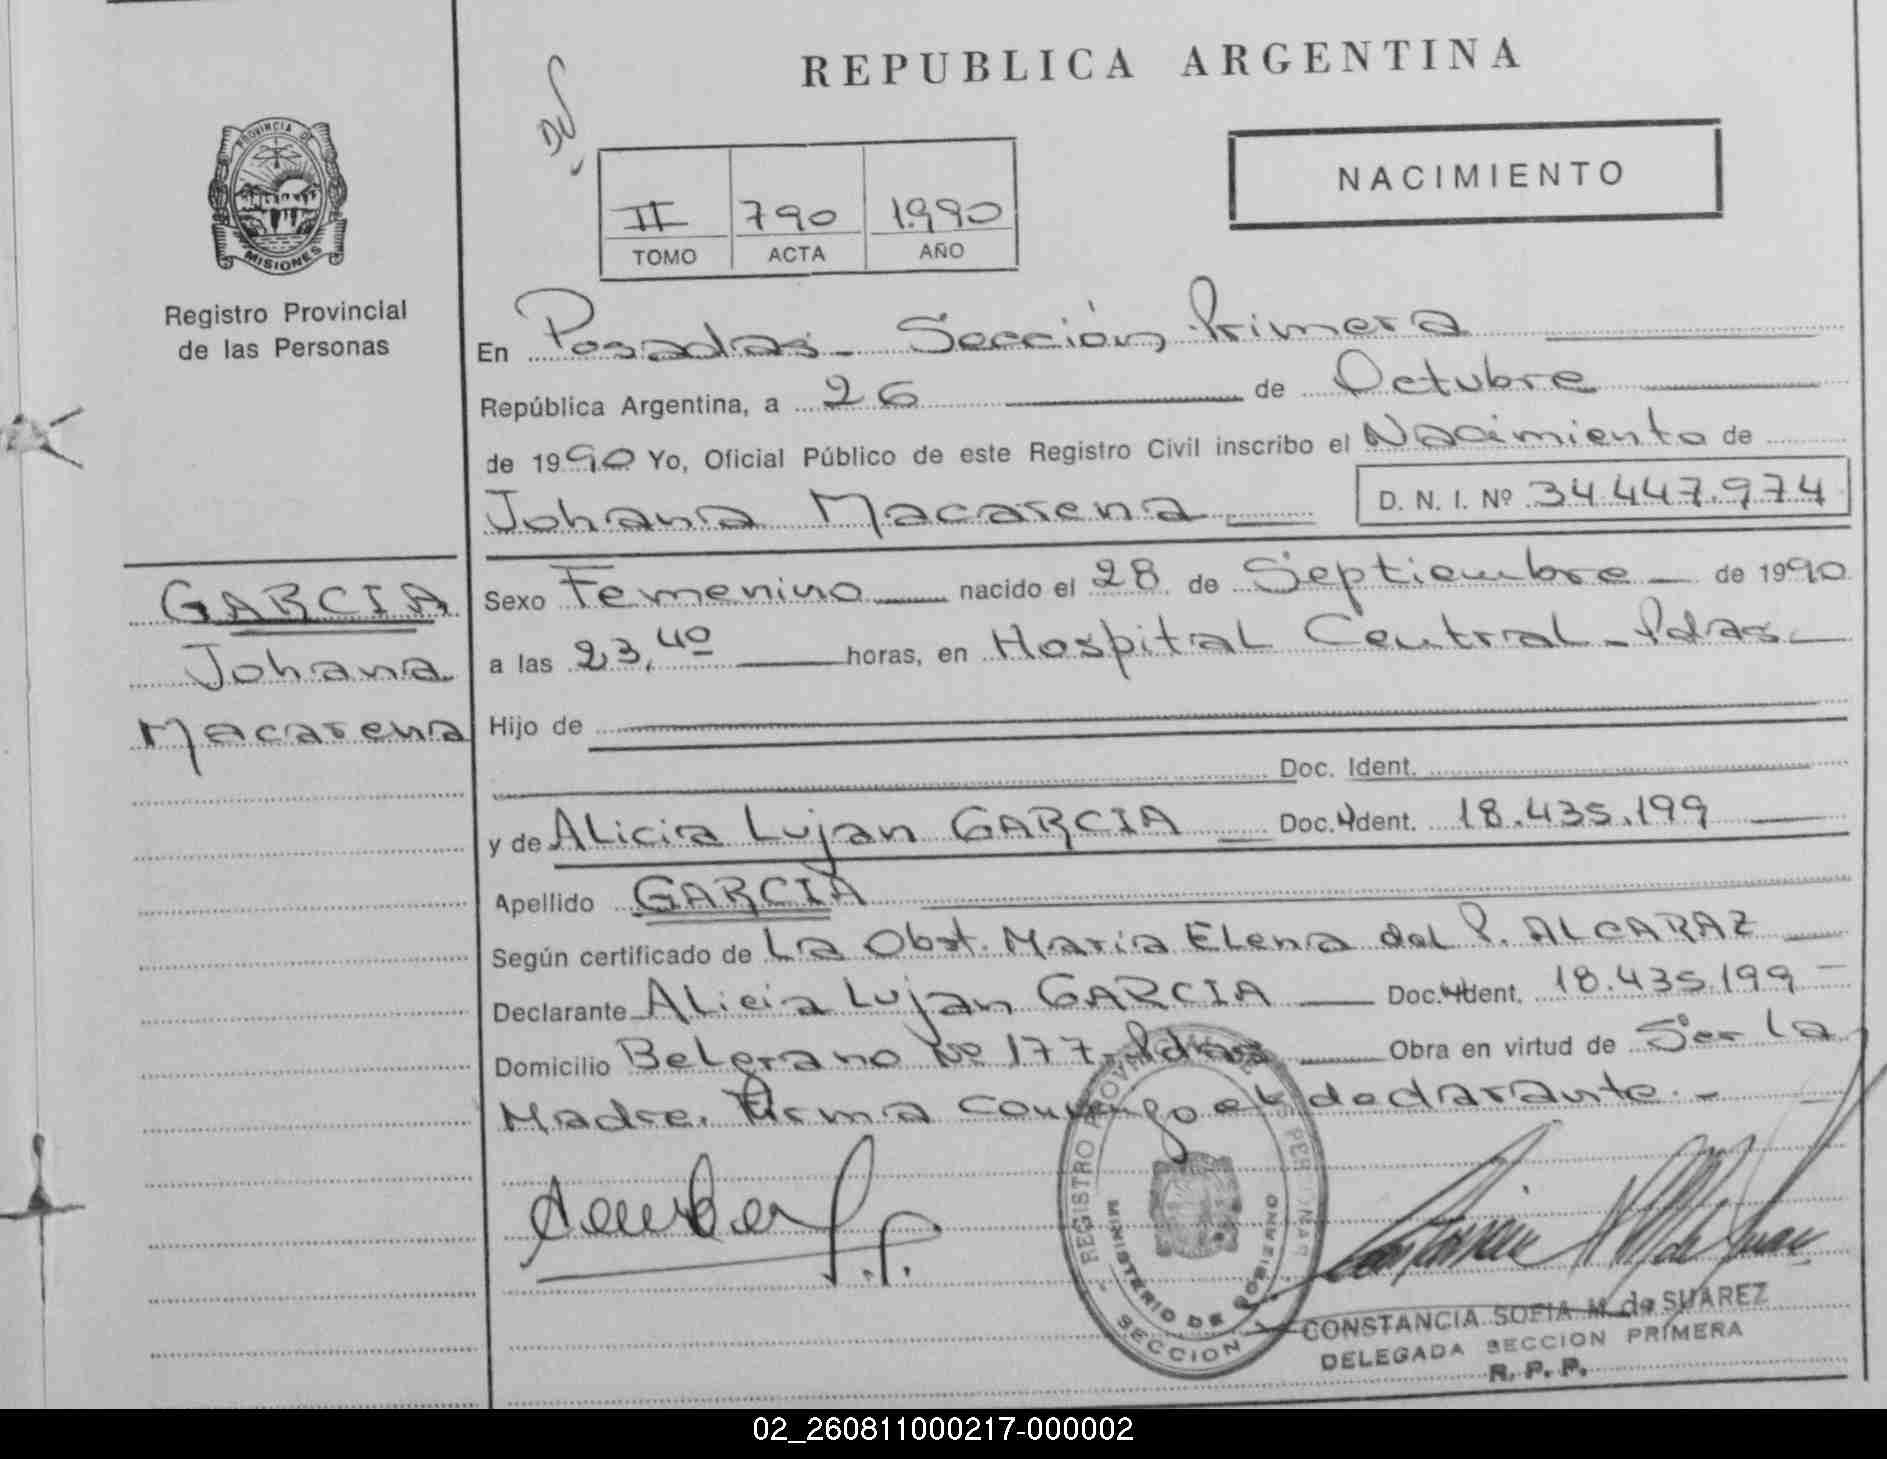 REPUBLICA ARGENTINA
PROVINCIA DE MISIONES
Registro Provincial
de las Personas
II 790 1.990
TOMO ACTA AÑO
NACIMIENTO
En Posadas - Sección Primera
República Argentina, a 26 de Octubre
de 1990 Yo, Oficial Público de este Registro Civil inscribo el Nacimiento de
Johana Macarena D. N. I. Nº 34.447.974
GARCIA
Johana
Macarena
Sexo Femenino nacido el 28 de Septiembre de 1990
a las 23,40 horas, en Hospital Central - Pdas -
Hijo de
Doc. Ident.
y de Alicia Lujan GARCIA Doc. Ident. 18.435.199
Apellido GARCIA
Según certificado de La Obst. Maria Elena del P. ALCARAZ
Declarante Alicia Lujan GARCIA Doc. Ident. 18.435.199 -
Domicilio Belgrano Nº 177 - Pdas Obra en virtud de Ser la
Madre. Firma conmigo el declarante. -
REGISTRO PROVINCIAL DE LAS PERSONAS
MINISTERIO DE GOBIERNO
SECCION 1
CONSTANCIA SOFIA M. de SUAREZ
DELEGADA SECCION PRIMERA
R. P. P.
02_260811000217-000002